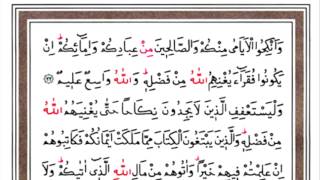 وَاَنْكِحُوا الْاَيَامٰى مِنْكُمْ وَالصَّالِحٖينَ مِنْ عِبَادِكُمْ وَاِمَٓائِكُمْ اِنْ
يَكُونُوا فُقَرَٓاءَ يُغْنِهِمُ اللّٰهُ مِنْ فَضْلِهٖ وَاللّٰهُ وَاسِعٌ عَلٖيمٌ ﴿٣٢﴾
وَلْيَسْتَعْفِفِ الَّذٖينَ لَا يَجِدُونَ نِكَاحًا حَتّٰى يُغْنِيَهُمُ اللّٰهُ
مِنْ فَضْلِهٖ وَالَّذٖينَ يَبْتَغُونَ الْكِتَابَ مِمَّا مَلَكَتْ اَيْمَانُكُمْ فَكَاتِبُوهُمْ
اِنْ عَلِمْتُمْ فٖيهِمْ خَيْرًا وَاٰتُوهُمْ مِنْ مَالِ اللّٰهِ الَّذٖٓى اٰتٰيكُمْ وَلَا